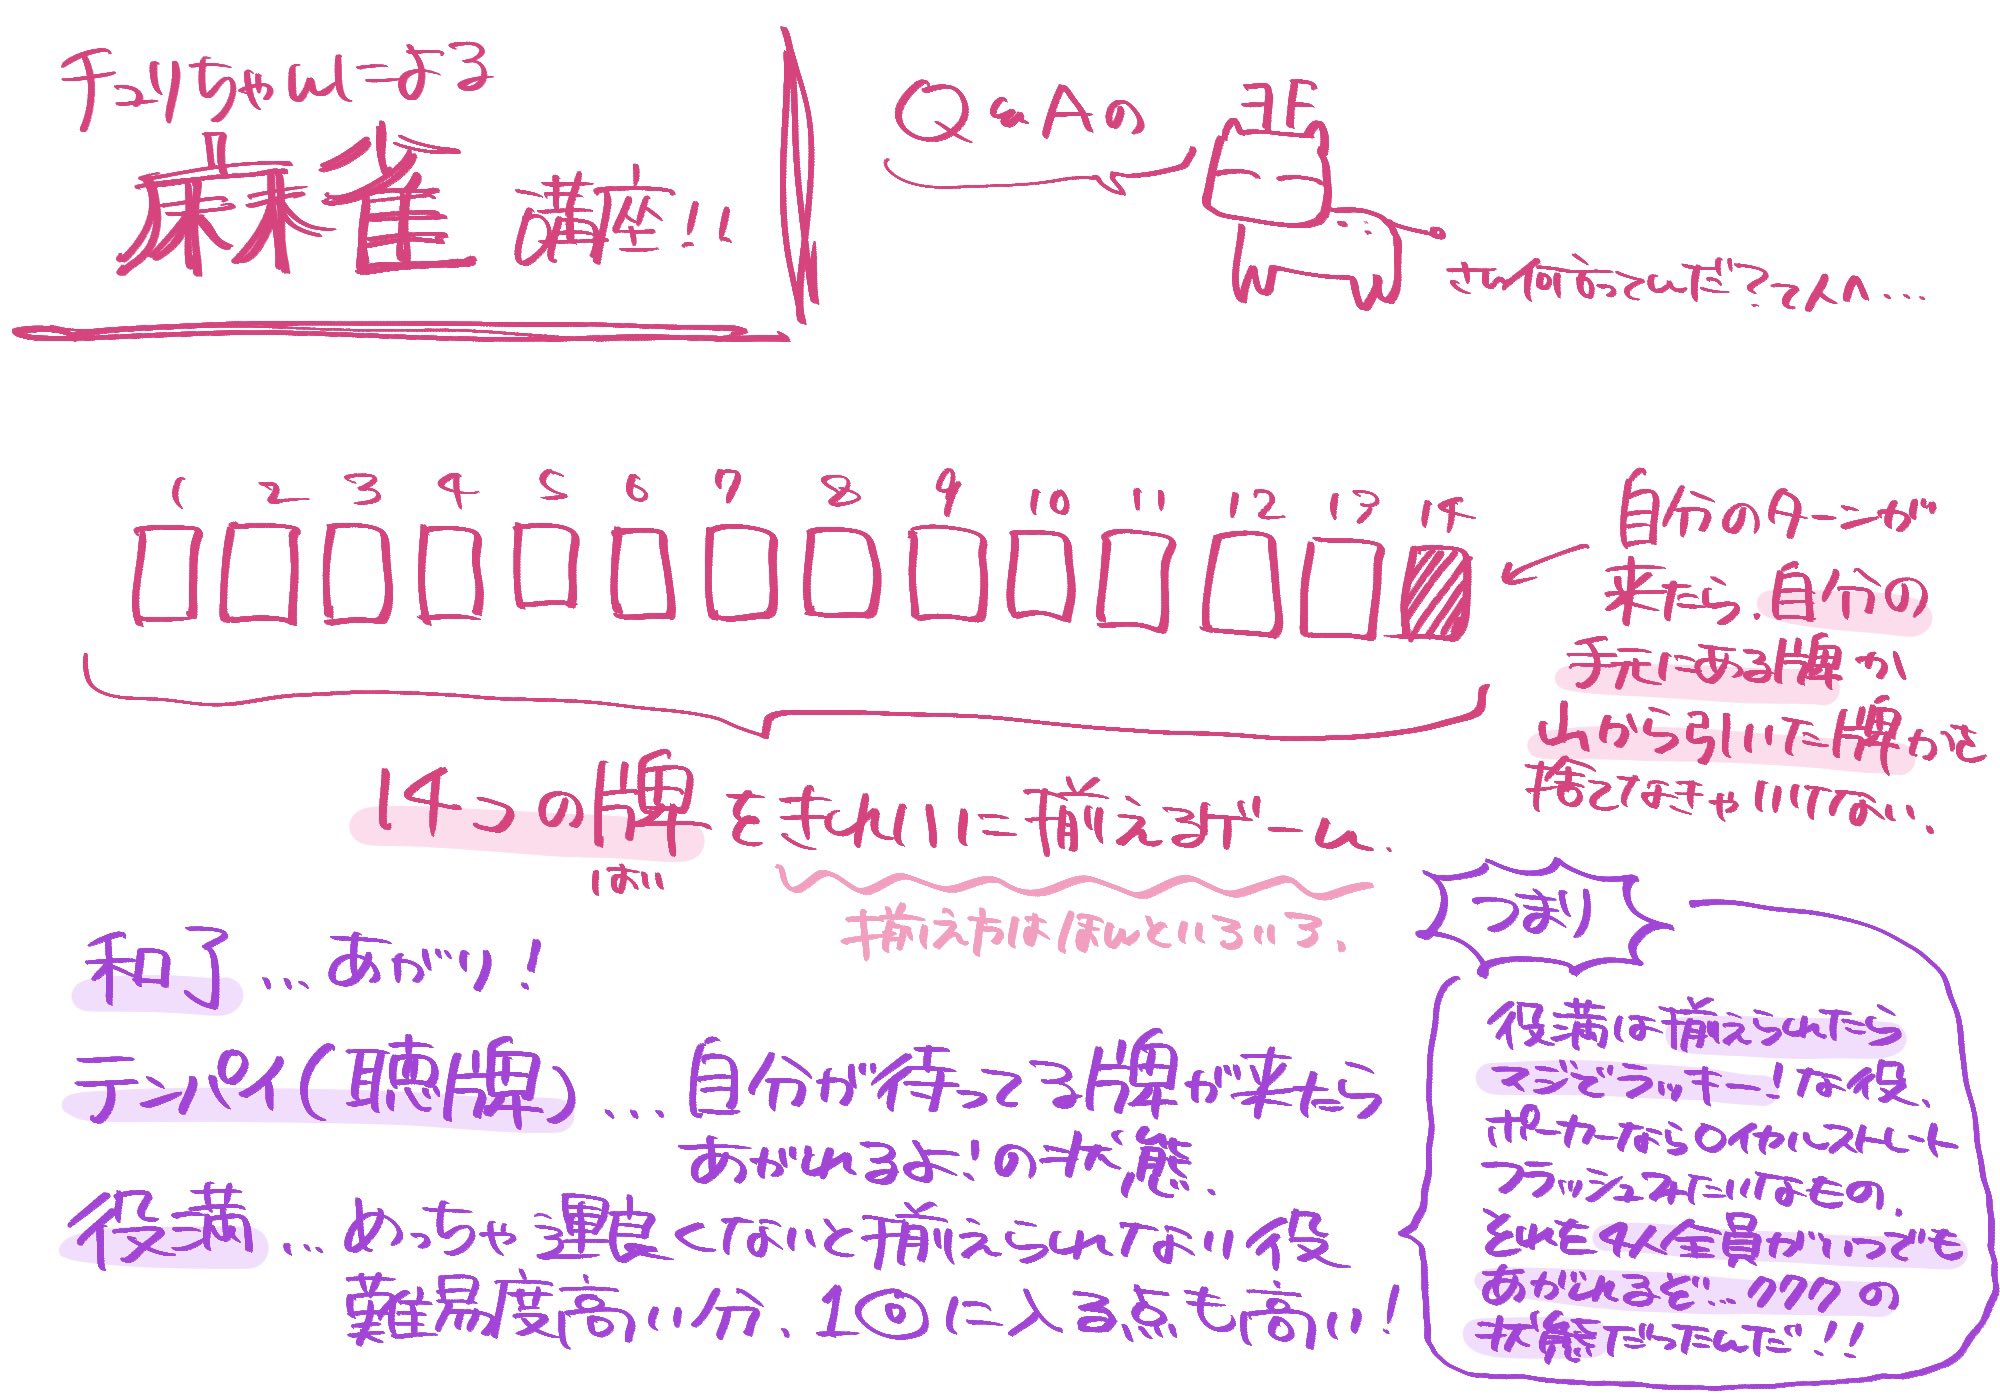 チュリちゃんによる
麻雀 講座!!
Q&Aの
ヨF
さん何言ってんだ?って人へ...
1 2 3 4 5 6 7 8 9 10 11 12 13 14
自分のターンが
来たら、自分の
手元にある牌か
山から引いた牌かを
捨てなきゃいけない。
14つの牌をきれいに揃えるゲーム。
はい
揃え方はほんといろいろ。
和了...あがり!
テンパイ(聴牌)...自分が待ってる牌が来たら
あがれるよ!の状態。
役満...めっちゃ運良くないと揃えられない役
難易度高い分、1回に入る点も高い!
つまり
役満は揃えられたら
マジでラッキー!な役、
ポーカーならロイヤルストレート
フラッシュみたいなもの。
それを4人全員がいつでも
あがれるぞ...ククク の
状態だったんだ!!